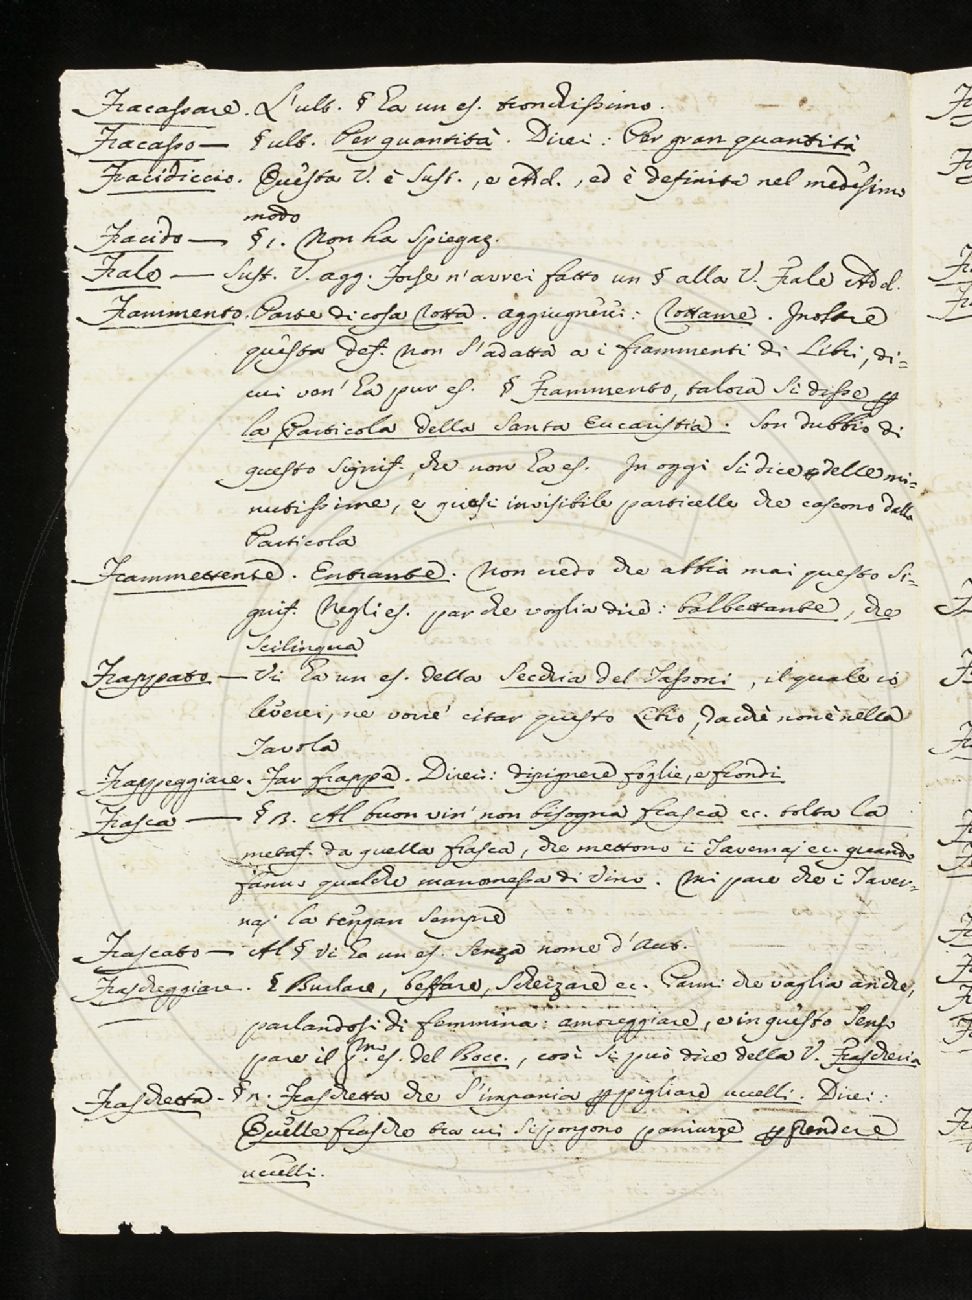 Fracassare. L'ult. § ha un es. tronchissimo.
Fracasso — § ult. Per quantità. Direi: Per gran quantità
Fracidiccio. Questa V. è Sust., e Add., ed è definita nel medesimo
modo
Fracido — § 1. Non ha spiegaz.
Frale — Sust. V. agg. Forse n'avrei fatto un § alla V. Frale Add.
Frammento. Parte di cosa rotta. aggiugnerei: Rottame. Inoltre
questa def. non s'adatta a i frammenti di Libri, di-
cui von' ha pur es. § Frammento, talora si disse p
la Particola della Santa Eucaristia. Son dubbio di
questo signif. che non ha es. In oggi si dice p delle mi-
nutissime, e quasi invisibile particelle che cascono dalla
Particola
Frammettente. Entrante. Non credo che abbia mai questo si-
gnif. Negli es. par che voglia dire: balbettante, che
scilingua
Frappato — Vi ha un es. della Secchia del Tassoni, il quale io
leverei, ne vorre' citar questo Libro, giacchè non è nella
Tavola
Frappeggiare. Far frappe. Direi: dipignere foglie, e frondi
Frasca — § n. Al buon vin' non bisogna frasca ec. tolta la
metaf. da quella frasca, che mettono i Tavernaj ec. quando
fanno qualche manomessa di vino. Mi pare che i Taver-
naj la tengan sempre
Frascato — Al § vi ha un es. senza nome d'Aut.
Frascheggiare. § Burlare, beffare, scherzare ec. Parmi che vaglia anche,
parlandosi di femmina: amoreggiare, e in questo senso
pare il p.mo es. del Bocc., così si può dire della V. Frascheria
Fraschetta — § n. Fraschetta che s'impania p pigliare uccelli. Direi:
Quelle frasche tra cui si pongono paniuzze p prendere
uccelli.